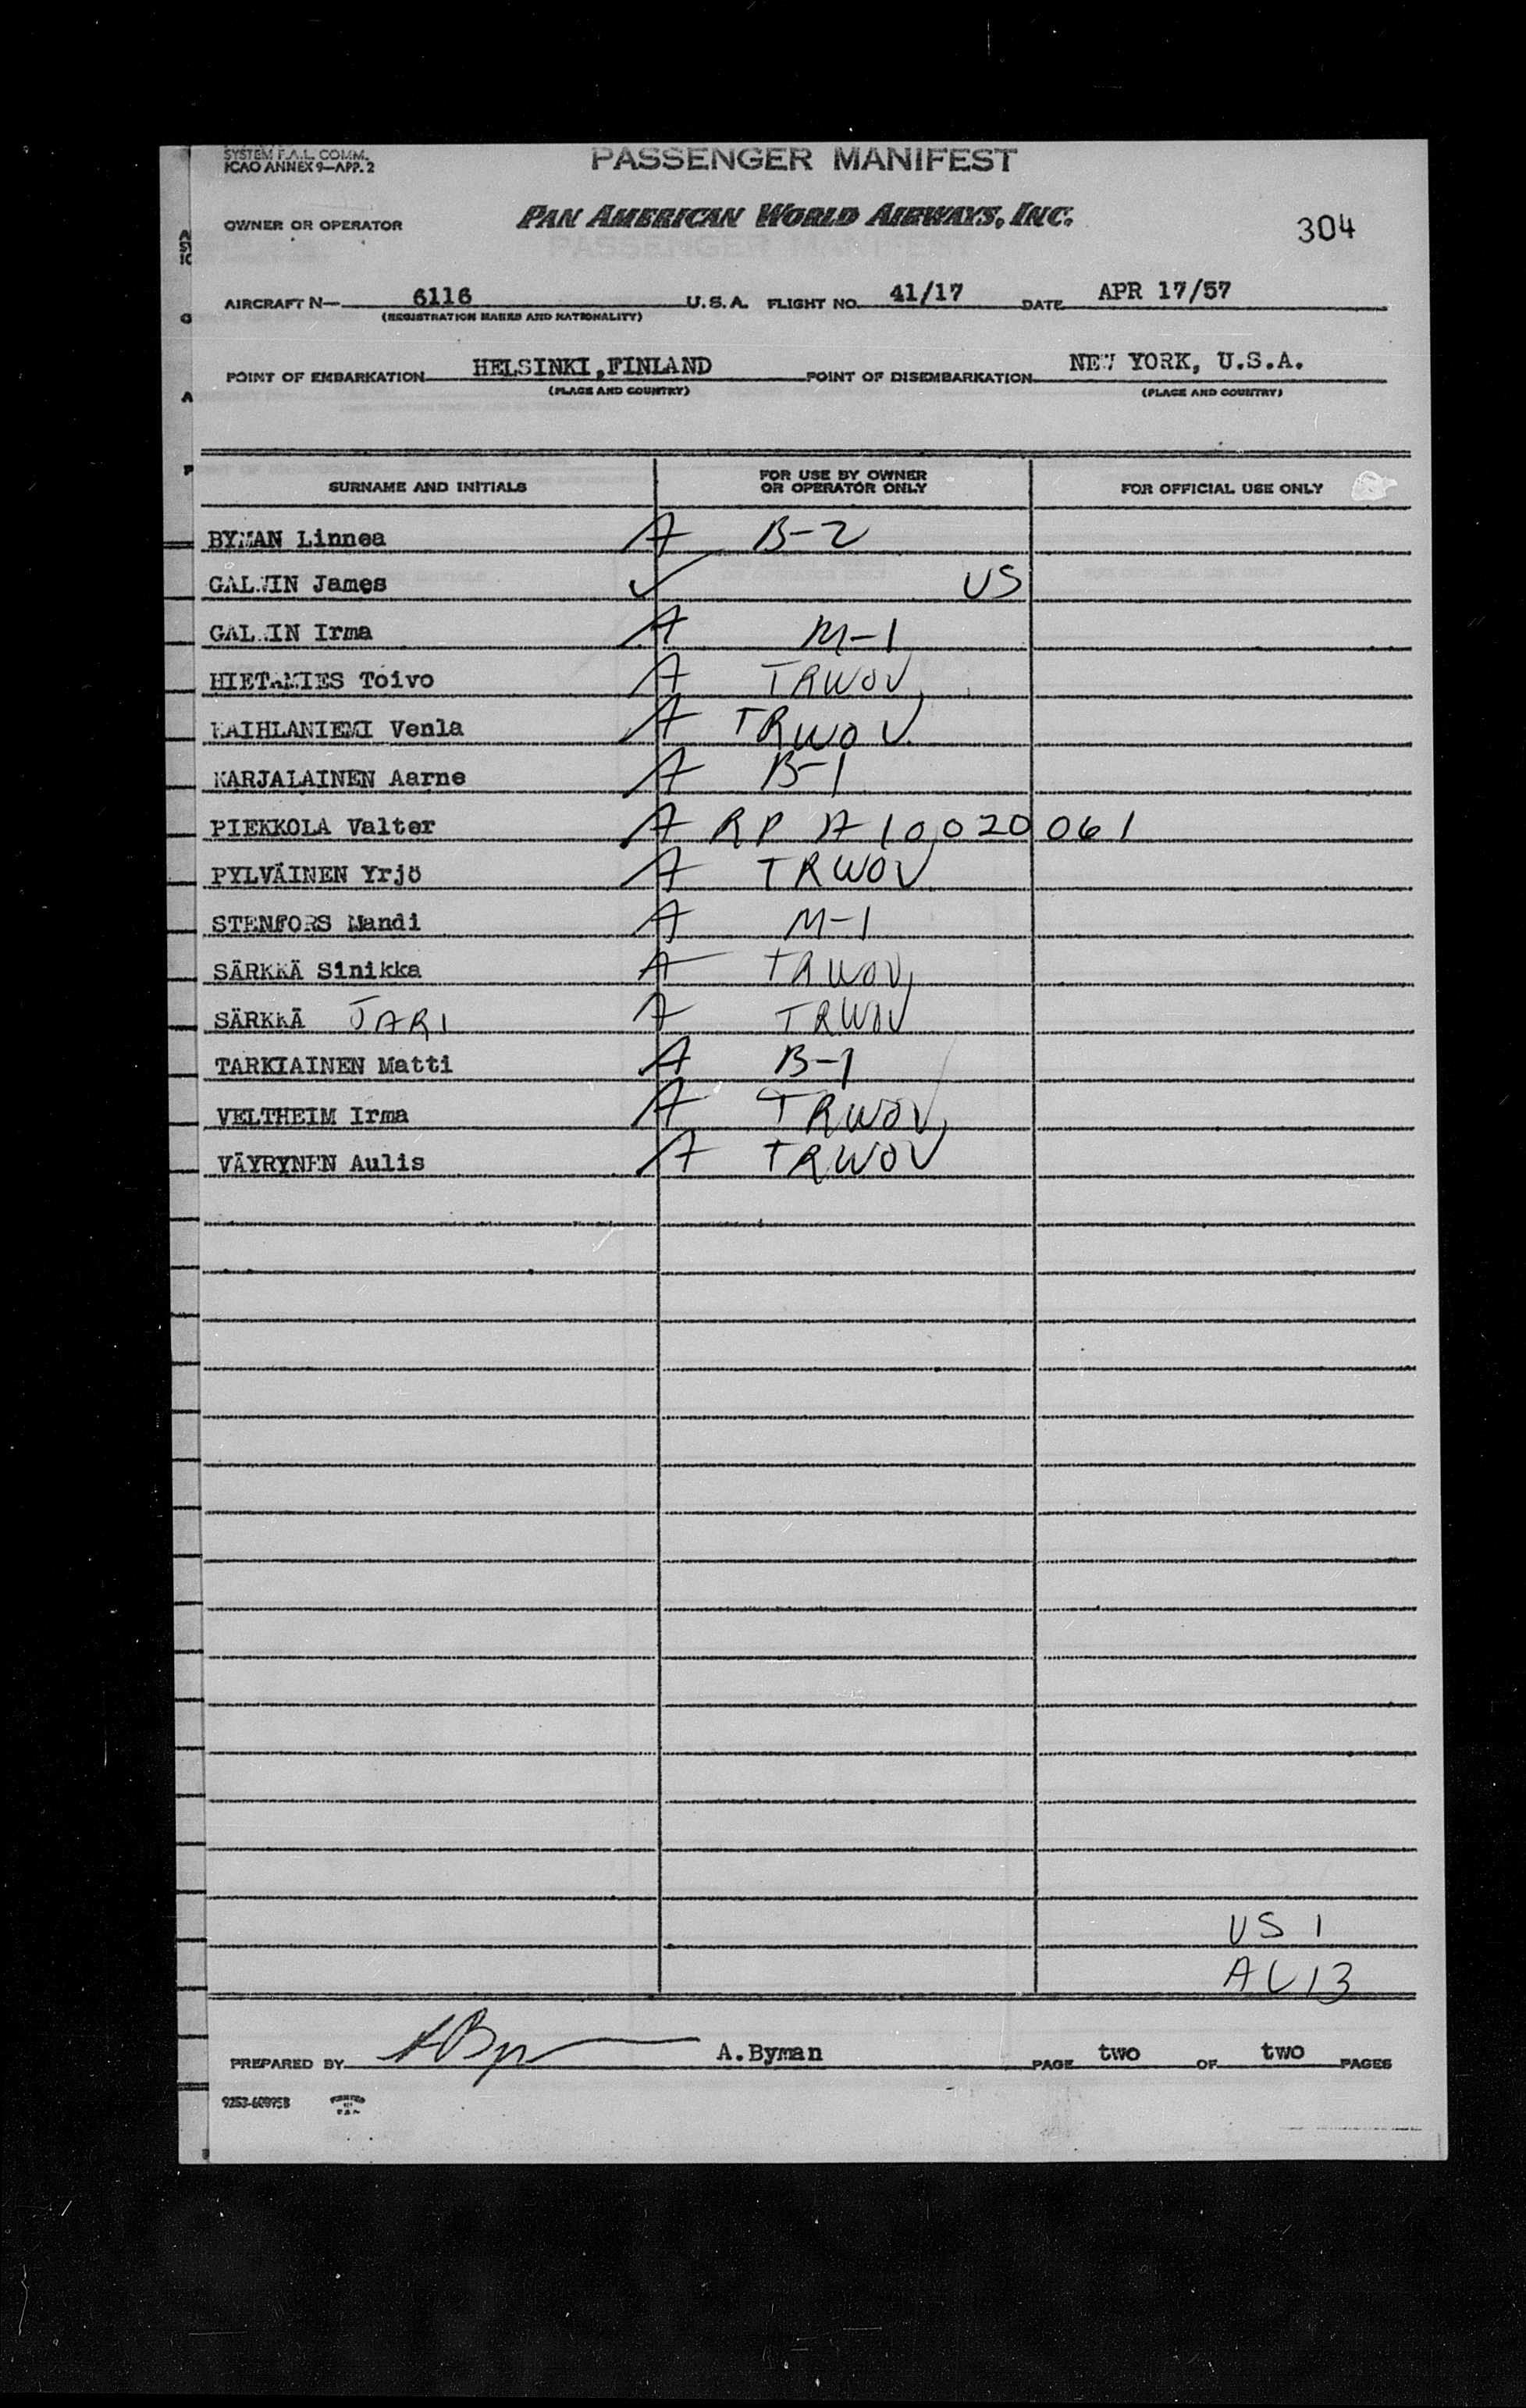 SYSTEM F.A.L. COMM.
ICAO ANNEX 9—APP. 2
PASSENGER MANIFEST
OWNER OR OPERATOR PAN AMERICAN WORLD AIRWAYS, INC. 304
AIRCRAFT N— 6116 U.S.A. FLIGHT NO. 41/17 DATE APR 17/57
(REGISTRATION MARKS AND NATIONALITY)
POINT OF EMBARKATION HELSINKI,FINLAND POINT OF DISEMBARKATION NEW YORK, U.S.A.
(PLACE AND COUNTRY) (PLACE AND COUNTRY)
SURNAME AND INITIALS FOR USE BY OWNER OR OPERATOR ONLY FOR OFFICIAL USE ONLY
BYMAN Linnea A B-2
James ✓ US
Irma A M-1
HIETAMIES Toivo A TRWOV
KAIHLANIEMI Venla A TRWOV
KARJALAINEN Aarne A B-1
PIEKKOLA Valter A RP A10020061
PYLVÄINEN Yrjö A TRWOV
STENFORS Mandi A M-1
SÄRKKÄ Sinikka A TRWOV
SÄRKKÄ JARI A TRWOV
TARKIAINEN Matti A B-1
VELTHEIM Irma A TRWOV
VÄYRYNEN Aulis A TRWOV
US 1
AL 13
PREPARED BY A.Byman PAGE two OF two PAGES